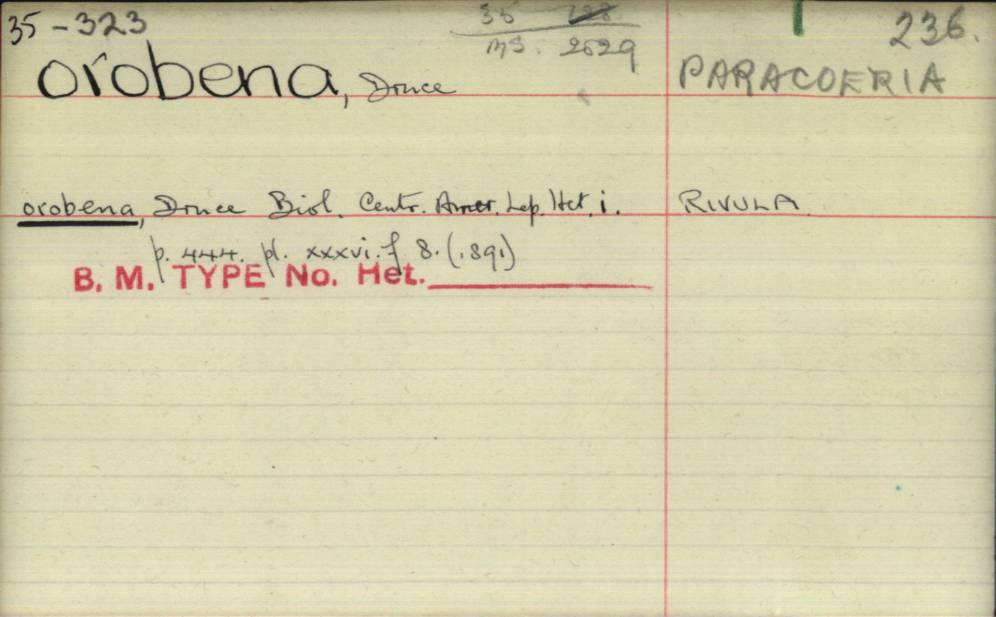 35-323 35 MS. 2629 236.
orobena, Druce PARACOERIA
orobena, Druce Biol. Centr. Amer. Lep. Het. i. RIVULA
p. 444. pl. xxxvi. f 8. (1891)
B. M. TYPE No. Het.